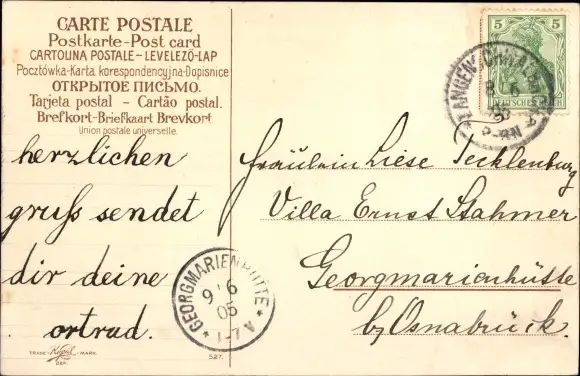 CARTE POSTALE
Postkarte-Post card
CARTOLINA POSTALE-LEVELEZÖ-LAP
Pocztówka-Karta korespondencyjna-Dopisnice
ОТКРЫТОЕ ПИСЬМО.
Tarjeta postal - Cartão postal.
Brefkort-Briefkaart Brevkort
Union postale universelle.
5 5
DEUTSCHES REICH
LANGENSCHWALBACH
8 6
herzlichen
gruss sendet
dir deine
ortrud.
Fräulein Liese Tecklenburg
Villa Ernst Stahmer
Georgmarienhütte
b/ Osnabrück.
GEORGMARIENHÜTTE
9 6
05
1-7 V
TRADE MARK
DEP.
527.